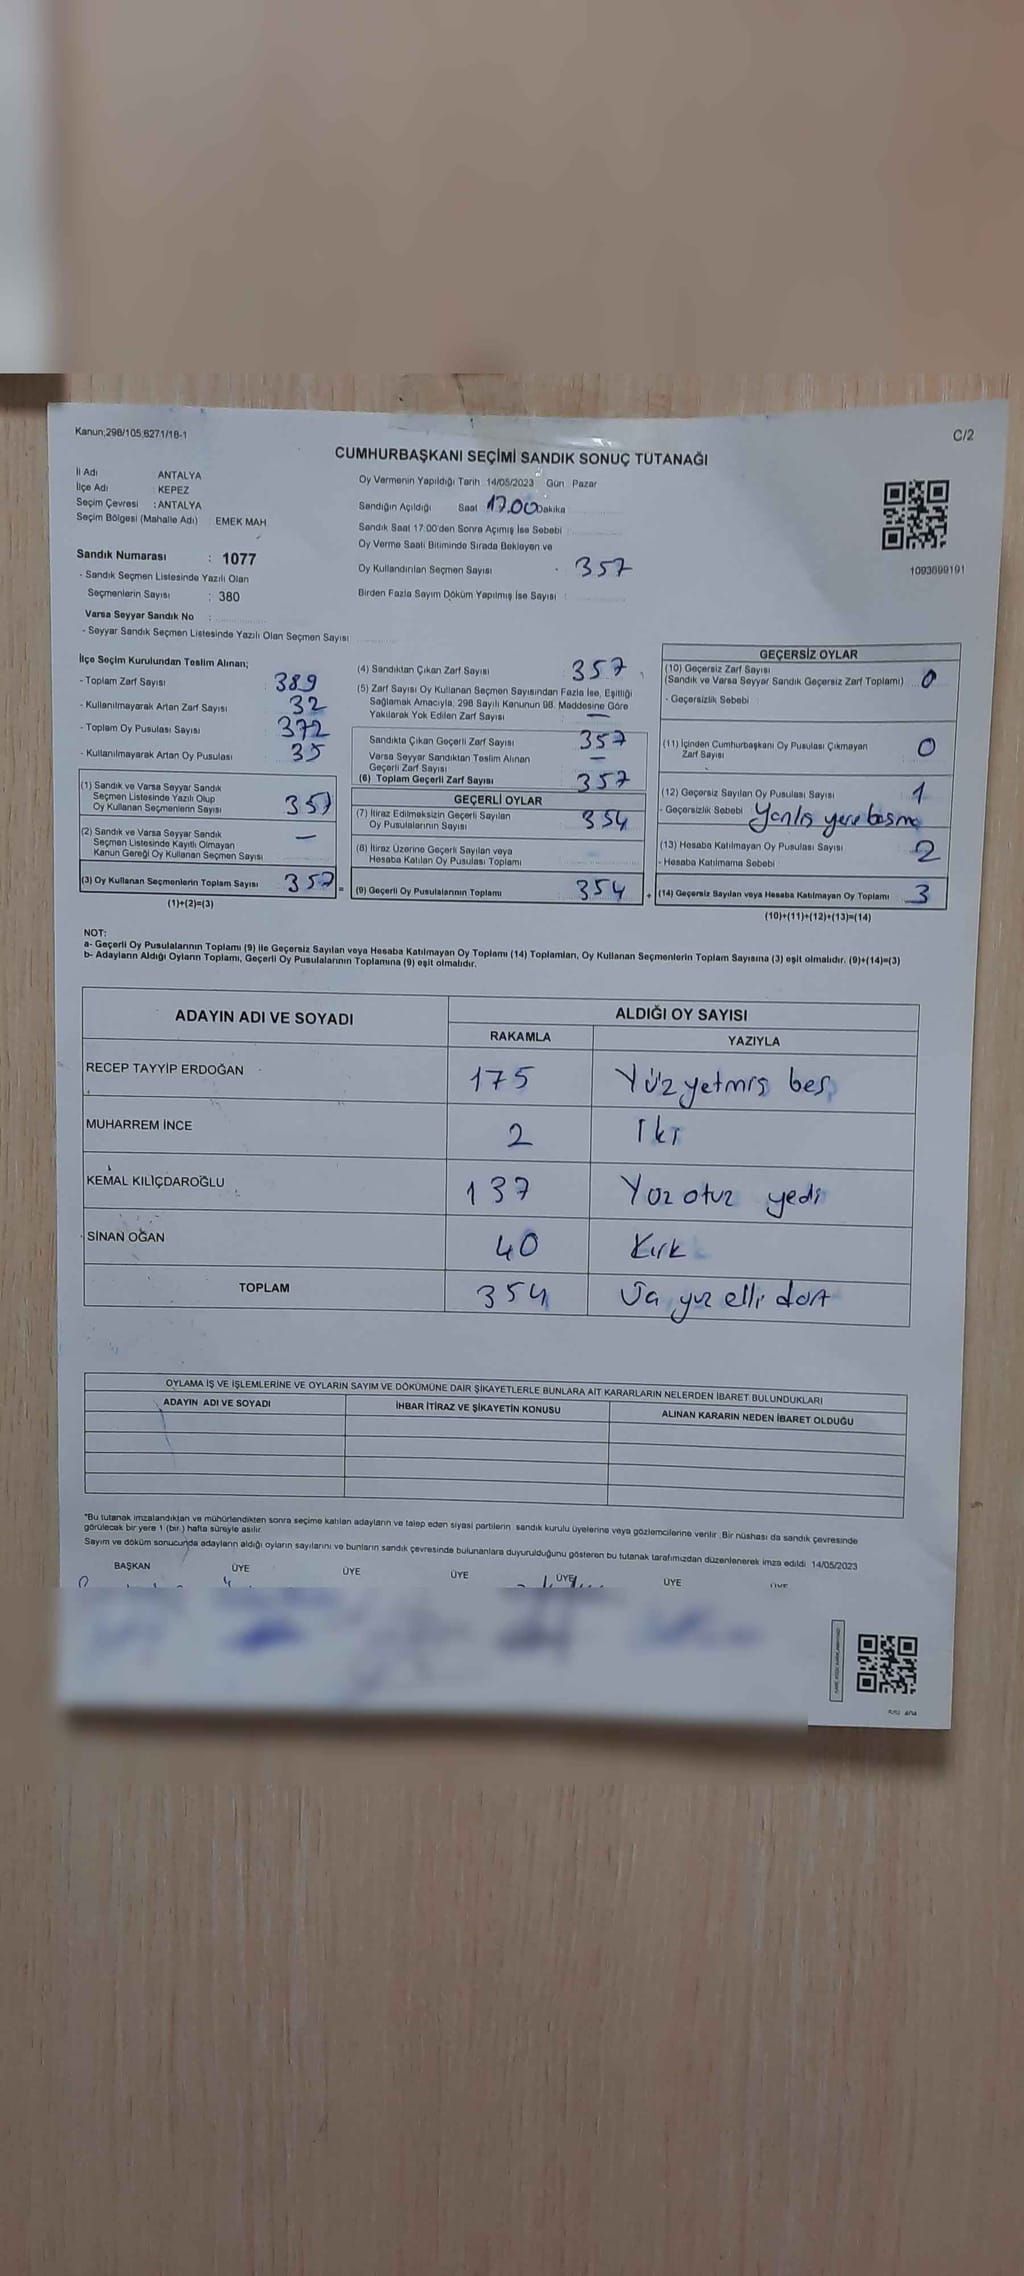 Kanun;298/105,6271/18-1
C/2
CUMHURBAŞKANI SEÇİMİ SANDIK SONUÇ TUTANAĞI
İl Adı ANTALYA
İlçe Adı : KEPEZ
Seçim Çevresi : ANTALYA
Seçim Bölgesi (Mahalle Adı) EMEK MAH
Oy Vermenin Yapıldığı Tarih 14/05/2023 Gün Pazar
Sandığın Açıldığı Saat 17.00 Dakika
Sandık Saat 17:00'den Sonra Açımış İse Sebebi
Oy Verme Saati Bitiminde Sırada Bekleyen ve
Oy Kullandırılan Seçmen Sayısı 357
Birden Fazla Sayım Döküm Yapılmış İse Sayısı :
1093699191
Sandık Numarası : 1077
- Sandık Seçmen Listesinde Yazılı Olan
Seçmenlerin Sayısı : 380
Varsa Seyyar Sandık No :
- Seyyar Sandık Seçmen Listesinde Yazılı Olan Seçmen Sayısı
İlçe Seçim Kurulundan Teslim Alınan;
- Toplam Zarf Sayısı 389
- Kullanılmayarak Artan Zarf Sayısı 32
- Toplam Oy Pusulası Sayısı 372
- Kullanılmayarak Artan Oy Pusulası 35
(1) Sandık ve Varsa Seyyar Sandık
Seçmen Listesinde Yazılı Olup
Oy Kullanan Seçmenlerin Sayısı 357
(2) Sandık ve Varsa Seyyar Sandık
Seçmen Listesinde Kayıtlı Olmayan
Kanun Gereği Oy Kullanan Seçmen Sayısı —
(3) Oy Kullanan Seçmenlerin Toplam Sayısı 357 =
(1)+(2)=(3)
(4) Sandıktan Çıkan Zarf Sayısı 357
(5) Zarf Sayısı Oy Kullanan Seçmen Sayısından Fazla İse, Eşitliği
Sağlamak Amacıyla, 298 Sayılı Kanunun 98. Maddesine Göre
Yakılarak Yok Edilen Zarf Sayısı —
Sandıkta Çıkan Geçerli Zarf Sayısı 357
Varsa Seyyar Sandıktan Teslim Alınan
Geçerli Zarf Sayısı —
(6) Toplam Geçerli Zarf Sayısı 357
GEÇERLİ OYLAR
(7) İtiraz Edilmeksizin Geçerli Sayılan
Oy Pusulalarının Sayısı 354
(8) İtiraz Üzerine Geçerli Sayılan veya
Hesaba Katılan Oy Pusulası Toplamı
(9) Geçerli Oy Pusulalarının Toplamı 354 +
GEÇERSİZ OYLAR
(10) Geçersiz Zarf Sayısı
(Sandık ve Varsa Seyyar Sandık Geçersiz Zarf Toplamı) 0
- Geçersizlik Sebebi
(11) İçinden Cumhurbaşkanı Oy Pusulası Çıkmayan
Zarf Sayısı 0
(12) Geçersiz Sayılan Oy Pusulası Sayısı 1
- Geçersizlik Sebebi Yanlış yere basma
(13) Hesaba Katılmayan Oy Pusulası Sayısı 2
- Hesaba Katılmama Sebebi
(14) Geçersiz Sayılan veya Hesaba Katılmayan Oy Toplamı 3
(10)+(11)+(12)+(13)=(14)
NOT:
a- Geçerli Oy Pusulalarının Toplamı (9) ile Geçersiz Sayılan veya Hesaba Katılmayan Oy Toplamı (14) Toplamları, Oy Kullanan Seçmenlerin Toplam Sayısına (3) eşit olmalıdır. (9)+(14)=(3)
b- Adayların Aldığı Oyların Toplamı, Geçerli Oy Pusulalarının Toplamına (9) eşit olmalıdır.
ADAYIN ADI VE SOYADI
ALDIĞI OY SAYISI
RAKAMLA YAZIYLA
RECEP TAYYİP ERDOĞAN 175 Yüz yetmiş beş
MUHARREM İNCE 2 İki
KEMAL KILIÇDAROĞLU 137 Yüz otuz yedi
SİNAN OĞAN 40 Kırk
TOPLAM 354 Üç yüz elli dört
OYLAMA İŞ VE İŞLEMLERİNE VE OYLARIN SAYIM VE DÖKÜMÜNE DAİR ŞİKAYETLERLE BUNLARA AİT KARARLARIN NELERDEN İBARET BULUNDUKLARI
ADAYIN ADI VE SOYADI İHBAR İTİRAZ VE ŞİKAYETİN KONUSU ALINAN KARARIN NEDEN İBARET OLDUĞU
*Bu tutanak imzalandıktan ve mühürlendikten sonra seçime katılan adayların ve talep eden siyasi partilerin sandık kurulu üyelerine veya gözlemcilerine verilir. Bir nüshası da sandık çevresinde
görülecek bir yere 1 (bir ) hafta süreyle asılır.
Sayım ve döküm sonucunda adayların aldığı oyların sayılarını ve bunların sandık çevresinde bulunanlara duyurulduğunu gösteren bu tutanak tarafımızdan düzenlenerek imza edildi 14/05/2023
BAŞKAN ÜYE ÜYE ÜYE ÜYE ÜYE ÜYE